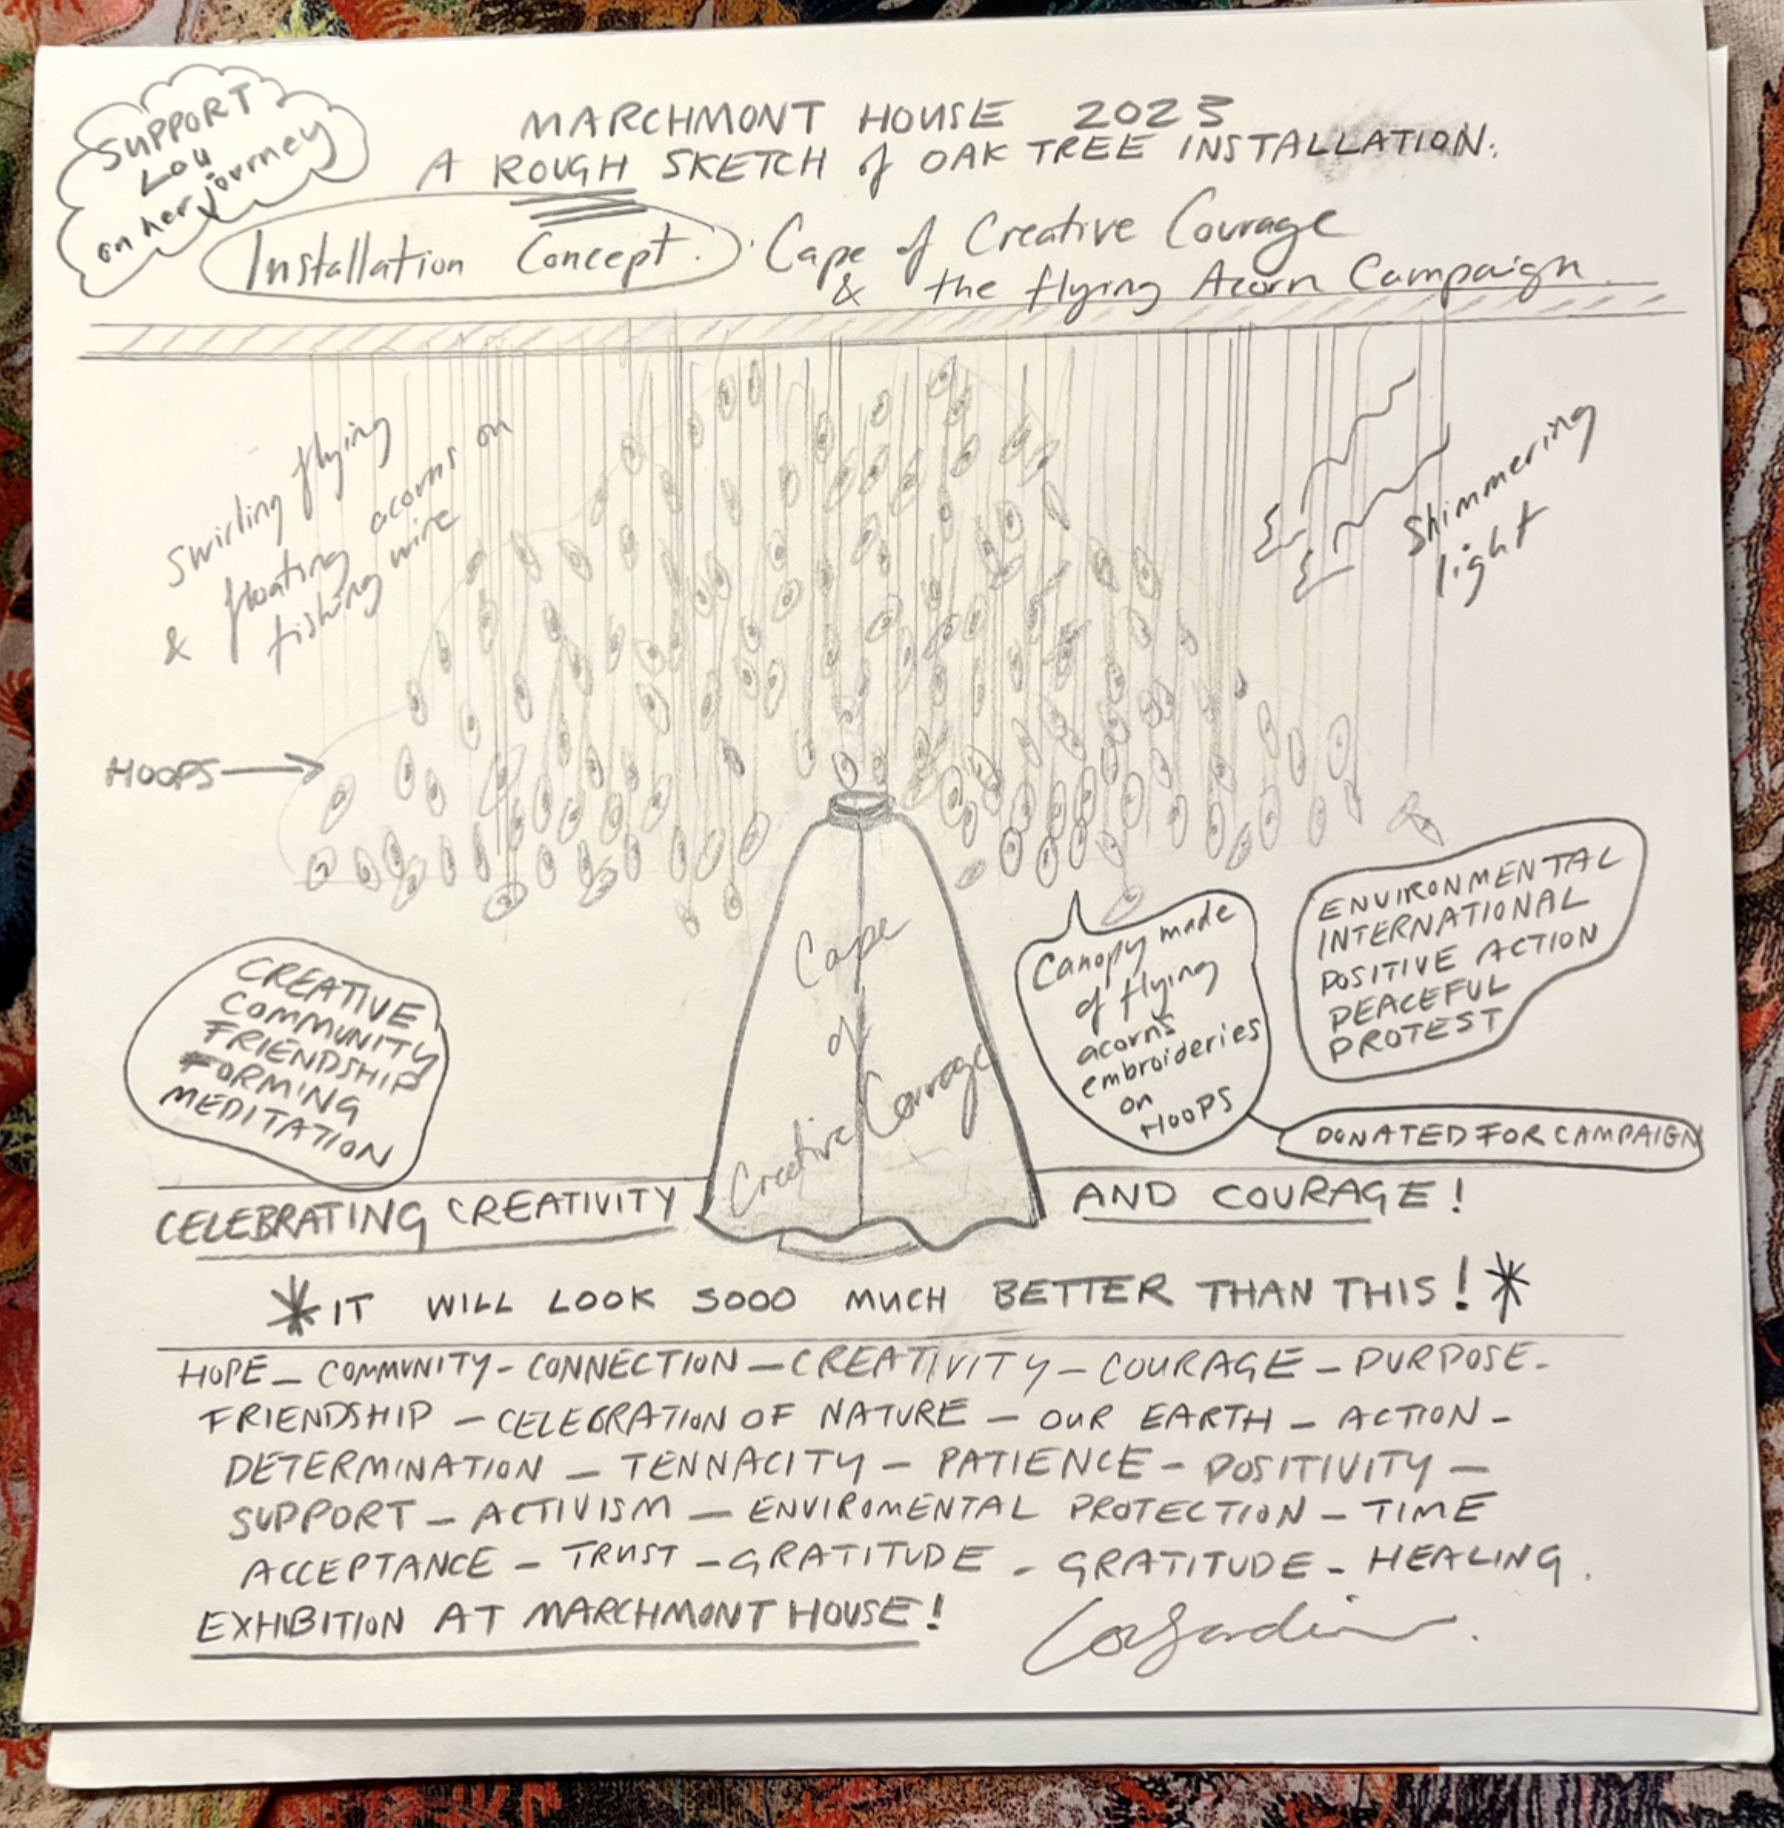 SUPPORT
LOU
on her journey
MARCHMONT HOUSE 2023
A ROUGH SKETCH of OAK TREE INSTALLATION.
Installation Concept. Cape of Creative Courage
& the flying Acorn Campaign
Swirling flying
& floating acorns on
fishing wire
Shimmering
light
HOOPS
Cape
of
Creative Courage
CREATIVE
COMMUNITY
FRIENDSHIP
FORMING
MEDITATION
Canopy made
of flying
acorns
embroideries
on
HOOPS
ENVIRONMENTAL
INTERNATIONAL
POSITIVE ACTION
PEACEFUL
PROTEST
DONATED FOR CAMPAIGN
CELEBRATING CREATIVITY AND COURAGE!
*IT WILL LOOK SOOO MUCH BETTER THAN THIS!*
HOPE - COMMUNITY - CONNECTION - CREATIVITY - COURAGE - PURPOSE -
FRIENDSHIP - CELEBRATION OF NATURE - OUR EARTH - ACTION -
DETERMINATION - TENNACITY - PATIENCE - POSITIVITY -
SUPPORT - ACTIVISM - ENVIROMENTAL PROTECTION - TIME
ACCEPTANCE - TRUST - GRATITUDE - GRATITUDE - HEALING.
EXHIBITION AT MARCHMONT HOUSE!